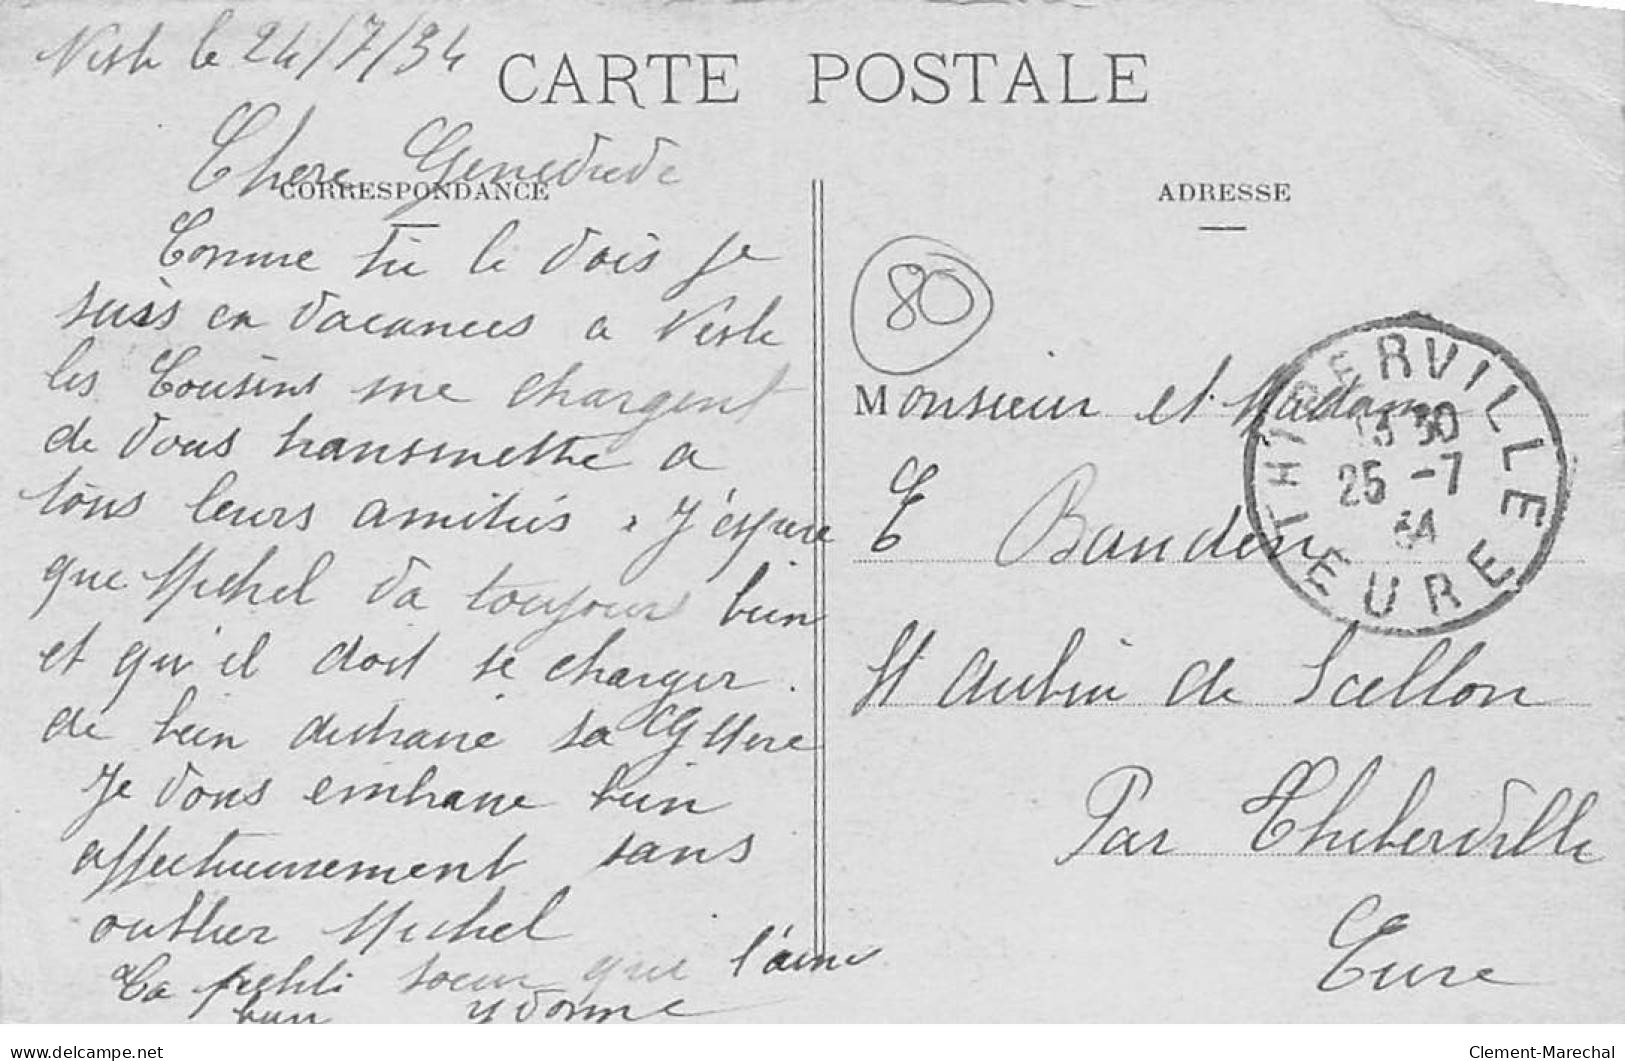 Nesle le 24/7/34
CARTE POSTALE
Chere Genedude
CORRESPONDANCE
ADRESSE
Comme tu le vois je
suis en vacances a Nesle
les Cousins me chargent
de vous transmettre a
tous leurs amitiés. J'espere
que Michel va toujours bien
et qu'il doit se charger
de bien distraire sa
Je vous embrasse bien
affectueusement sans
oublier Michel
Ta petite soeur que t'aime
bien Yvonne
80
Monsieur et Madame
E Bauden
St Aubin de Scellon
Par Thiberville
Eure
THIBERVILLE
13 30
25 -7
34
EURE
delcampe.net
Clement-Marechal